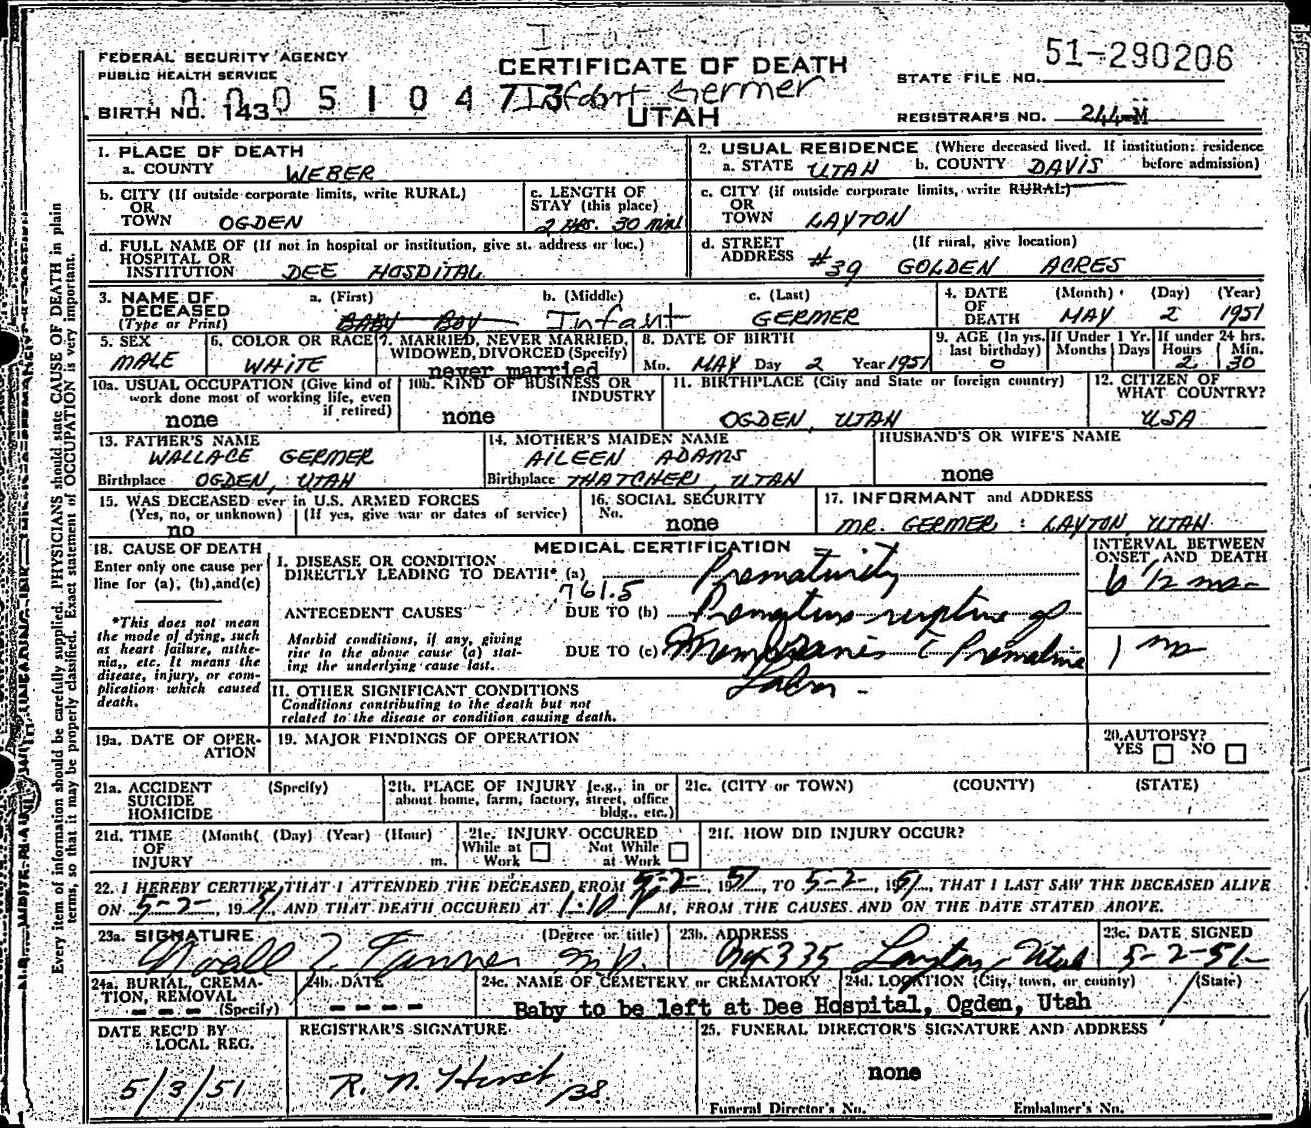 FEDERAL SECURITY AGENCY
PUBLIC HEALTH SERVICE
BIRTH NO. 143
CERTIFICATE OF DEATH
Infant Germer
UTAH
51-290206
STATE FILE NO.
REGISTRAR'S NO. 244-M
1. PLACE OF DEATH
a. COUNTY WEBER
2. USUAL RESIDENCE (Where deceased lived. If institution: residence before admission)
a. STATE UTAH b. COUNTY DAVIS
b. CITY (If outside corporate limits, write RURAL)
OR
TOWN OGDEN
c. LENGTH OF
STAY (this place)
2 HRS. 30 MIN
c. CITY (if outside corporate limits, write RURAL)
OR
TOWN LAYTON
d. FULL NAME OF (If not in hospital or institution, give st. address or loc.)
HOSPITAL OR
INSTITUTION DEE HOSPITAL
d. STREET (If rural, give location)
ADDRESS #39 GOLDEN ACRES
3. NAME OF a. (First) b. (Middle) c. (Last)
DECEASED
(Type or Print) BABY BOY Infant GERMER
4. DATE (Month) (Day) (Year)
OF
DEATH MAY 2 1951
5. SEX
MALE
6. COLOR OR RACE
WHITE
7. MARRIED, NEVER MARRIED,
WIDOWED, DIVORCED (Specify)
never married
8. DATE OF BIRTH
Mo. MAY Day 2 Year 1951
9. AGE (In yrs. last birthday) 0
If Under 1 Yr. Months Days
If under 24 hrs. Hours 2 Min. 30
10a. USUAL OCCUPATION (Give kind of
work done most of working life, even
if retired)
none
10b. KIND OF BUSINESS OR
INDUSTRY
none
11. BIRTHPLACE (City and State or foreign country)
OGDEN, UTAH
12. CITIZEN OF
WHAT COUNTRY?
USA
13. FATHER'S NAME
WALLACE GERMER
Birthplace OGDEN, UTAH
14. MOTHER'S MAIDEN NAME
AILEEN ADAMS
Birthplace THATCHER, UTAH
HUSBAND'S OR WIFE'S NAME
none
15. WAS DECEASED ever in U.S. ARMED FORCES
(Yes, no, or unknown) (If yes, give war or dates of service)
no
16. SOCIAL SECURITY
No. none
17. INFORMANT and ADDRESS
MR. GERMER : LAYTON UTAH
18. CAUSE OF DEATH
Enter only one cause per
line for (a), (b),and(c)
*This does not mean
the mode of dying, such
as heart failure, asthe-
nia,, etc. It means the
disease, injury, or com-
plication which caused
death.
MEDICAL CERTIFICATION
I. DISEASE OR CONDITION
DIRECTLY LEADING TO DEATH* (a) Prematurity
761.5
ANTECEDENT CAUSES DUE TO (b) Premature rupture of
Morbid conditions, if any, giving
rise to the above cause (a) stat-
ing the underlying cause last.
DUE TO (c) Membranes c Premature
Labor -
INTERVAL BETWEEN
ONSET AND DEATH
6 1/2 mo-
1 mo
II. OTHER SIGNIFICANT CONDITIONS
Conditions contributing to the death but not
related to the disease or condition causing death.
19a. DATE OF OPER-
ATION
19. MAJOR FINDINGS OF OPERATION
20. AUTOPSY?
YES NO
21a. ACCIDENT (Specify)
SUICIDE
HOMICIDE
21b. PLACE OF INJURY (e.g., in or
about home, farm, factory, street, office
bldg., etc.)
21c. (CITY OR TOWN) (COUNTY) (STATE)
21d. TIME (Month( (Day) (Year) (Hour)
OF
INJURY m.
21e. INJURY OCCURED
While at Work Not While at Work
21f. HOW DID INJURY OCCUR?
22. I HEREBY CERTIFY THAT I ATTENDED THE DECEASED FROM 5-2-, 1951, TO 5-2-, 1951, THAT I LAST SAW THE DECEASED ALIVE
ON 5-2-, 1951, AND THAT DEATH OCCURED AT 1:10 P M, FROM THE CAUSES AND ON THE DATE STATED ABOVE.
23a. SIGNATURE (Degree or title)
Noall Z. Tanner M.D.
23b. ADDRESS
Box 335 Layton, Utah
23c. DATE SIGNED
5-2-51
24a. BURIAL, CREMA-
TION, REMOVAL
(Specify)
- - -
24b. DATE
- - - -
24c. NAME OF CEMETERY or CREMATORY
24d. LOCATION (City, town, or county) (State)
Baby to be left at Dee Hospital, Ogden, Utah
DATE REC'D BY
LOCAL REG.
5/3/51
REGISTRAR'S SIGNATURE
R. N. Hirst
25. FUNERAL DIRECTOR'S SIGNATURE AND ADDRESS
none
Funeral Director's No. Embalmer's No.
Every item of information should be carefully supplied. PHYSICIANS should state CAUSE OF DEATH in plain
terms, so that it may be properly classified. Exact statement of OCCUPATION is very important.